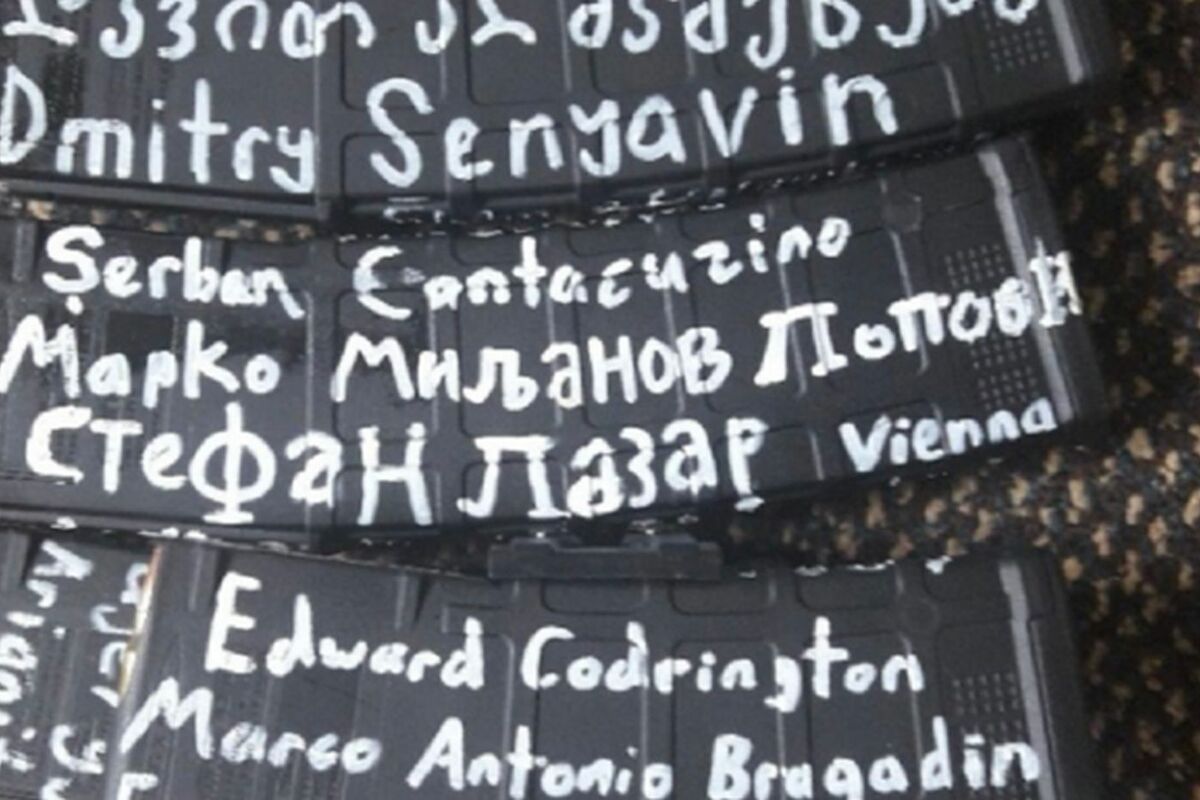 Dmitry Senyavin
Şerban Cantacuzino
Марко Миљанов Попови
Стефан Лазар Vienna
Edward Codrington
Marco Antonio Bragadin